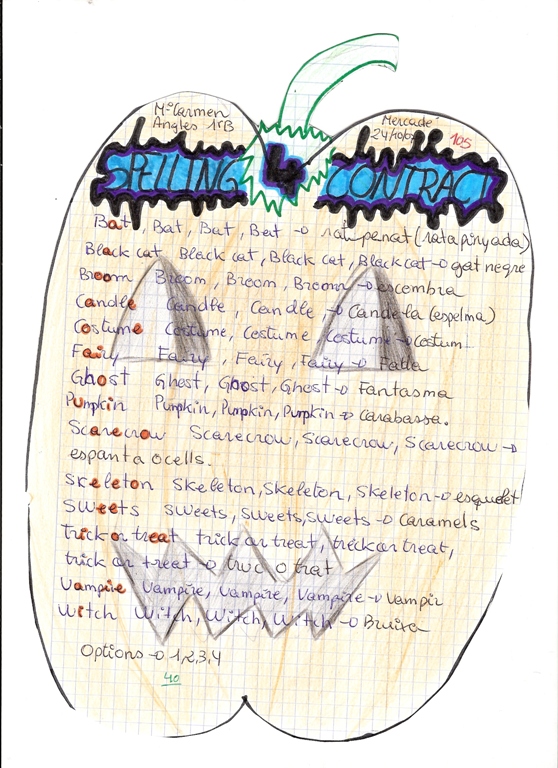 Mª Carmen
Angles 1rB
Mercadé
24/10/0
105
SPELLING 4 CONTRACT
Bat, Bat, Bat, Bat → ratpenat (ratapinyada)
Black cat Black cat, Black cat, Black cat → gat negre
Broom Broom, Broom, Broom → escombra
Candle Candle, Candle → Candela (espelma)
Costume Costume, Costume Costume → Costum
Fairy Fairy, Fairy, Fairy → Fada
Ghost Ghost, Ghost, Ghost → Fantasma
Pumpkin Pumpkin, Pumpkin, Pumpkin → carabassa.
Scarecrow Scarecrow, Scarecrow, Scarecrow →
espanta ocells.
Skeleton Skeleton, Skeleton, Skeleton → esquelet
Sweets sweets, sweets, sweets → Caramels
trick or treat trick or treat, trick or treat,
trick or treat → truc o trat
Vampire Vampire, Vampire, Vampire → Vampir
Witch Witch, Witch, Witch → Bruixa
Options → 1,2,3,4
40